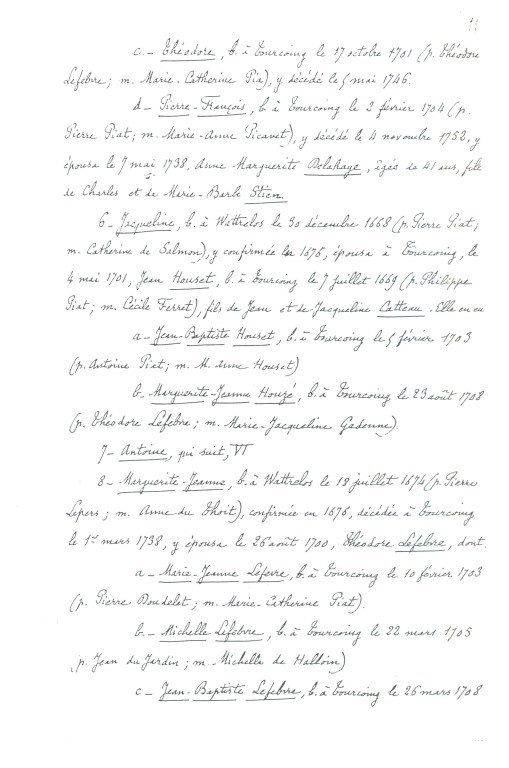 c.- Théodore, b. à Tourcoing le 17 octobre 1701 (p. Théodore
Lefebvre; m. Marie-Catherine Pia), y décédé le 5 mai 1746.
d - Pierre-François, b. à Tourcoing le 2 février 1704 (p.
Pierre Piat; m. Marie-Anne Picavet), y décédé le 4 novembre 1752, y
épousa le 7 mai 1738, Anne Marguerite Delahaye, âgée de 41 ans, fille
de Charles et de Marie-Barbe Stien
6 - Jacqueline, b. à Wattrelos le 30 décembre 1668 (p. Pierre Piat;
m. Catherine de Salmon), y confirmée en 1676, épousa à Tourcoing, le
4 mai 1701, Jean Houset, b. à Tourcoing le 7 juillet 1669 (p. Philippe
Piat; m. Cécile Ferret), fils de Jean et de Jacqueline Catteau. Elle en eu
a - Jean-Baptiste Houset, b. à Tourcoing le 5 février 1703
(p. Antoine Piat; m. M. Anne Houset)
b. Marguerite-Jeanne Houzé, b. à Tourcoing le 23 août 1708
(p. Théodore Lefebvre; m. Marie-Jacqueline Gadenne).
7 - Antoine, qui suit, VI
8 - Marguerite-Jeanne, b. à Wattrelos le 18 juillet 1674 (p. Pierre
Lepers; m. Anne du Thoit), confirmée en 1676, décédée à Tourcoing
le 1er mars 1738, y épousa le 26 août 1700, Théodore Lefebvre, dont.
a - Marie-Jeanne Lefevre, b. à Tourcoing le 10 février 1703
(p. Pierre Doudelet; m. Marie-Catherine Piat).
b. - Michelle Lefebvre, b. à Tourcoing le 22 mars 1705
(p. Jean du Jardin; m. Michelle de Halloin)
c - Jean-Baptiste Lefebvre, b. à Tourcoing le 26 mars 1708